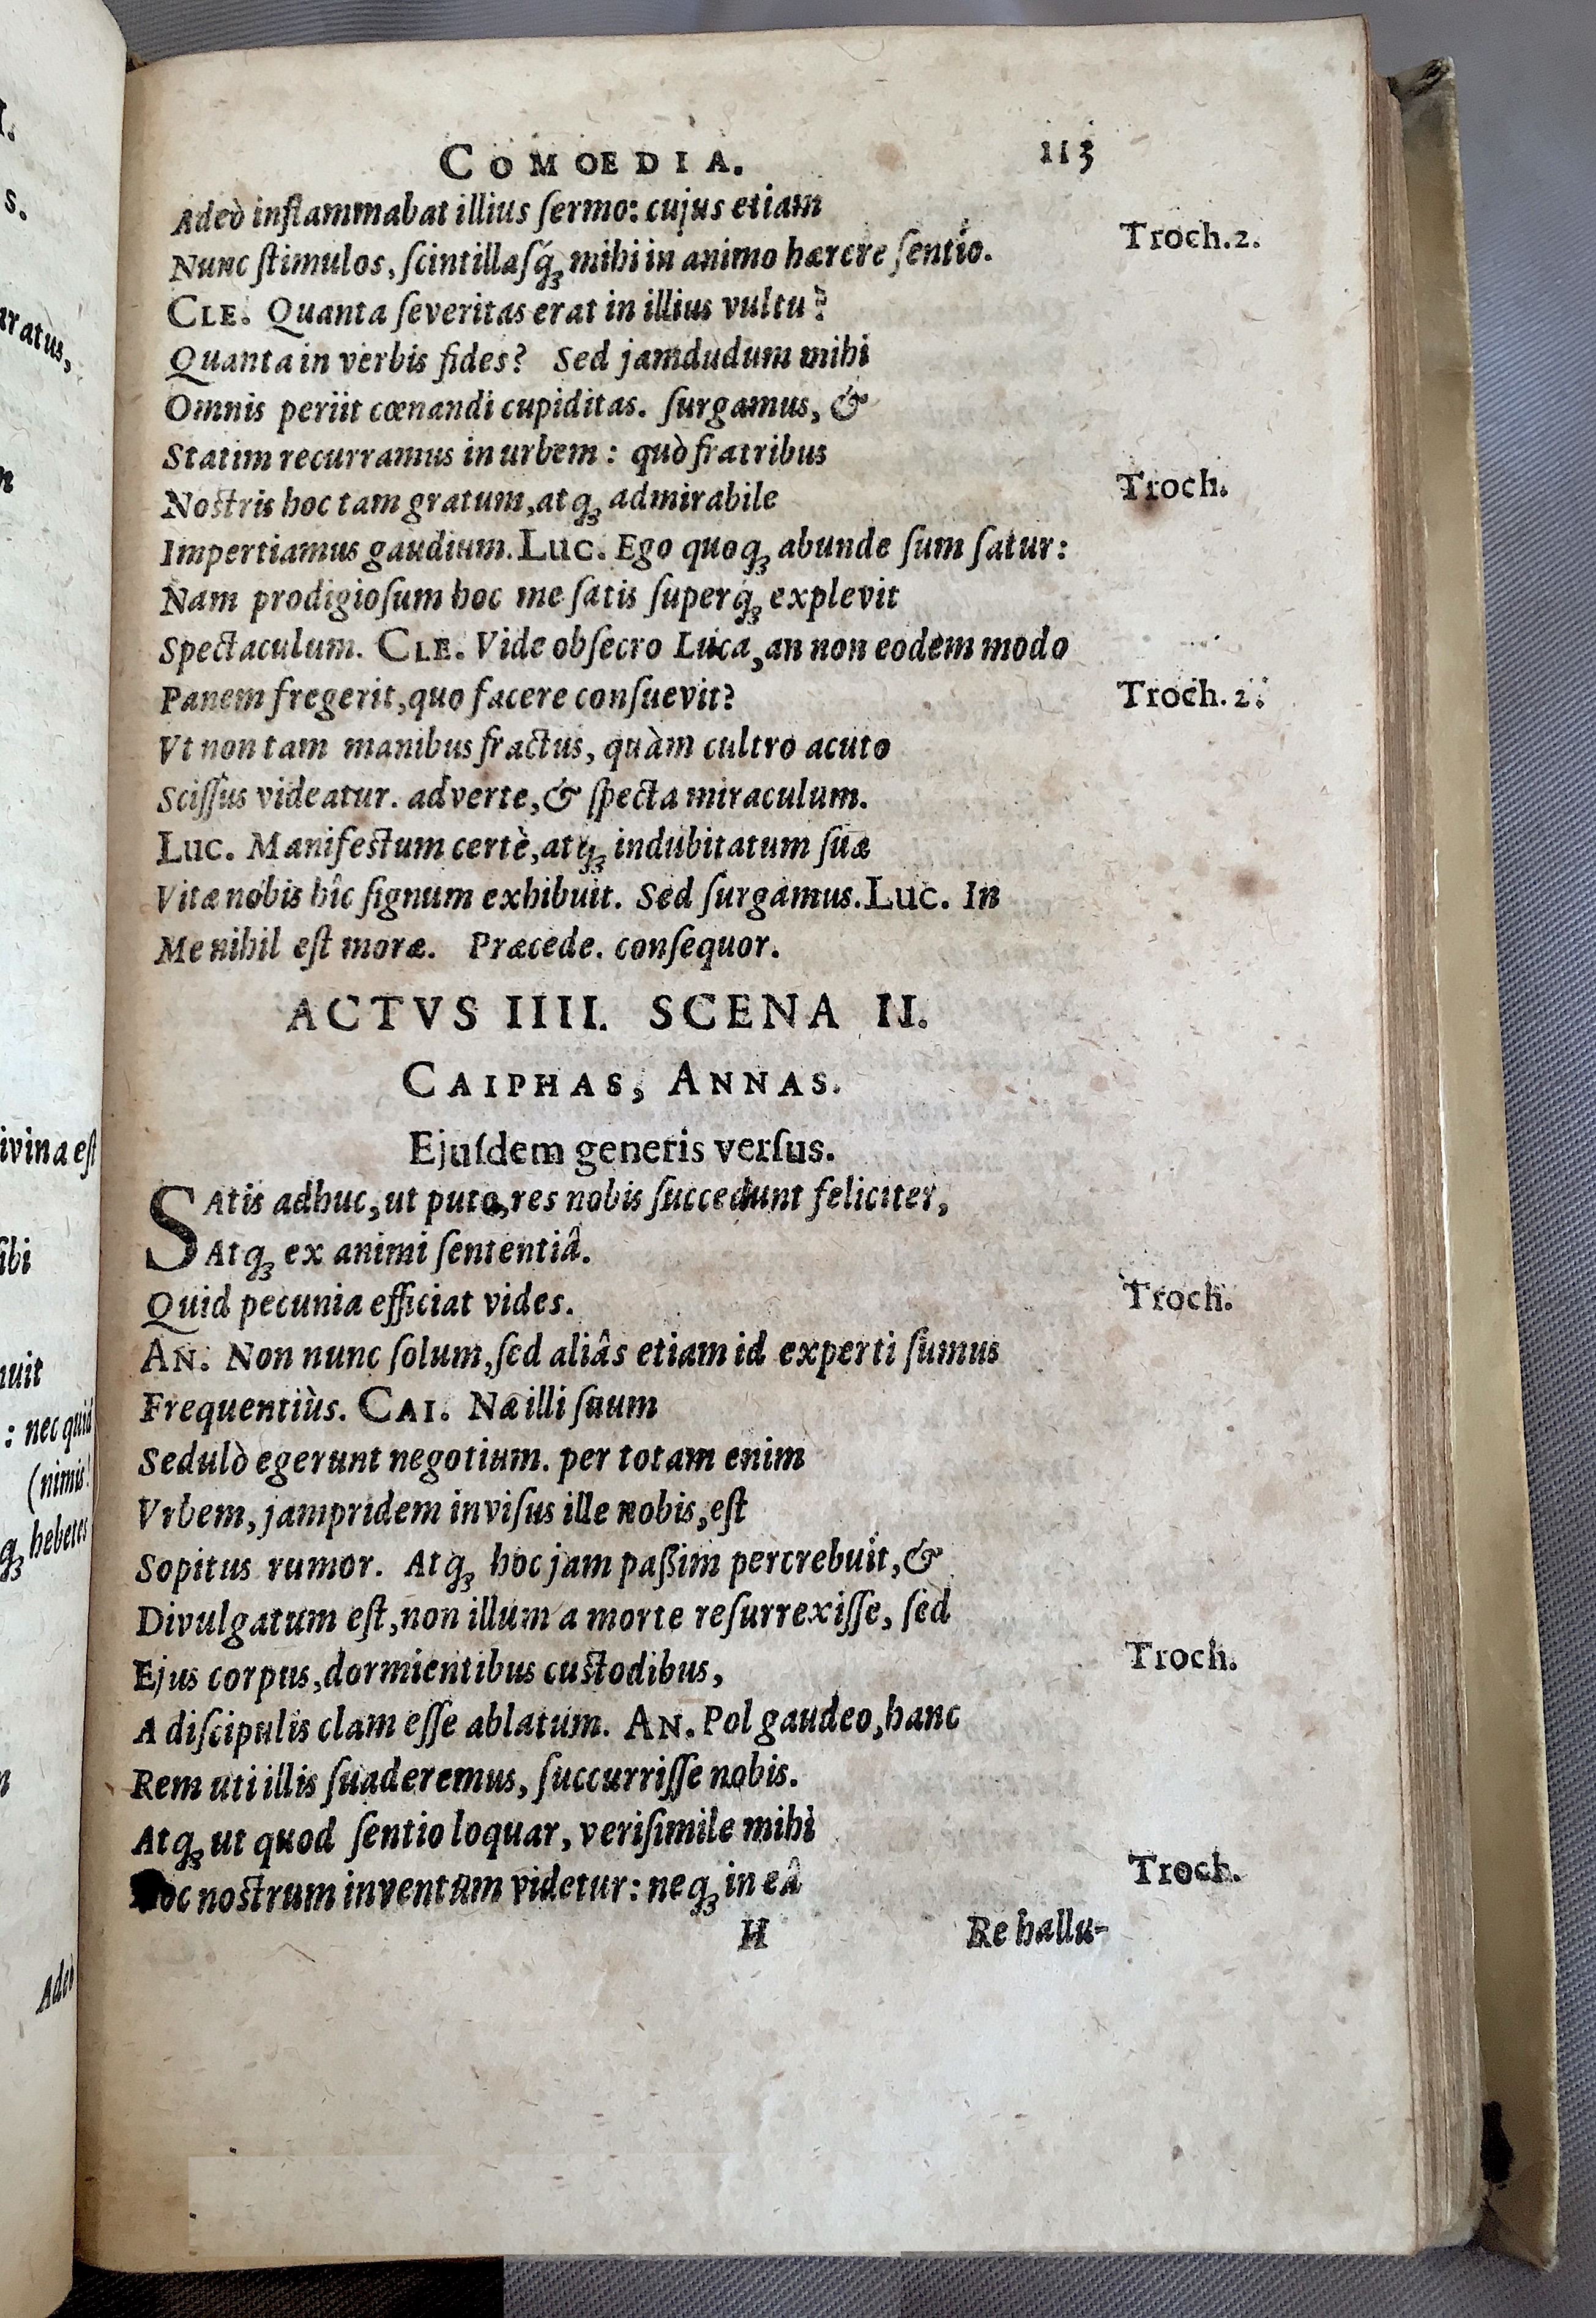 COMOEDIA. 113
Adeò inflammabat illius ſermo: cujus etiam
Nunc ſtimulos, ſcintillaſq́ꝫ mihi in animo hærere ſentio. Troch. 2.
CLE. Quanta ſeveritas erat in illius vultu?
Quanta in verbis fides? Sed jamdudum mihi
Omnis periit cœnandi cupiditas. ſurgamus, &
Statim recurramus in urbem: quò fratribus
Noſtris hoc tam gratum, atqꝫ admirabile Troch.
Impertiamus gaudium. Luc. Ego quoqꝫ abunde ſum ſatur:
Nam prodigioſum hoc me ſatis ſuperq́ꝫ explevit
Spectaculum. CLE. Vide obſecro Luca, an non eodem modo
Panem fregerit, quo facere conſuevit? Troch. 2.
Vt non tam manibus fractus, quàm cultro acuto
Sciſſus videatur. adverte, & ſpecta miraculum.
Luc. Manifeſtum certè, atqꝫ indubitatum ſuæ
Vitæ nobis hîc ſignum exhibuit. Sed ſurgamus. Luc. In
Me nihil eſt moræ. Præcede. conſequor.
ACTVS IIII. SCENA II.
CAIPHAS, ANNAS.
Ejuſdem generis verſus.
SAtis adhuc, ut puto, res nobis ſuccedunt feliciter,
Atqꝫ ex animi ſententiâ.
Quid pecunia efficiat vides. Troch.
AN. Non nunc ſolum, ſed aliâs etiam id experti ſumus
Frequentiùs. CAI. Næ illi ſuum
Sedulò egerunt negotium. per totam enim
Vrbem, jampridem inviſus ille nobis, eſt
Sopitus rumor. Atqꝫ hoc jam paßim percrebuit, &
Divulgatum eſt, non illum a morte reſurrexiſſe, ſed
Ejus corpus, dormientibus cuſtodibus, Troch.
A diſcipulis clam eſſe ablatum. AN. Pol gaudeo, hanc
Rem uti illis ſuaderemus, ſuccurriſſe nobis.
Atqꝫ ut quod ſentio loquar, veriſimile mihi
Hoc noſtrum inventum videtur: neqꝫ in eâ Troch.
H Re hallu-